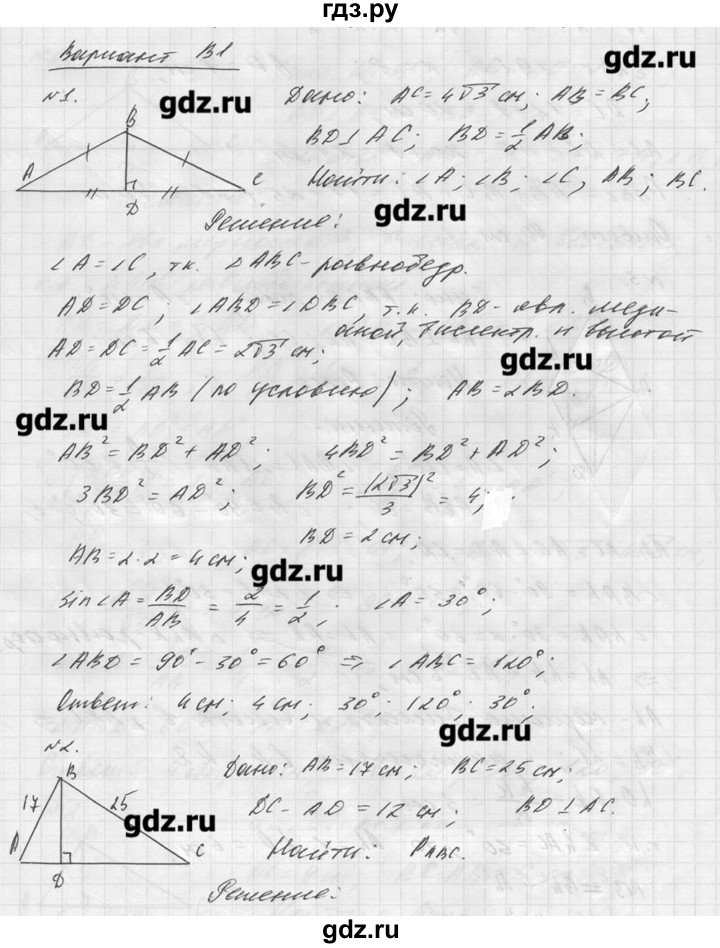 гдз.ру
Вариант В1
gdz.ru
№1.
gdz.ru
Дано: AC = 4√3 см; AB = BC;
B
A
C
D
BD ⊥ AC; BD = 1/2 AB;
Найти: ∠A; ∠B; ∠C, AB; BC.
gdz.ru
Решение:
∠A = ∠C, т.к. △ABC - равнобедр.
AD = DC; ∠ABD = ∠DBC, т.к. BD - явл. меди-
аной, биссектр. и высотой
AD = DC = 1/2 AC = 2√3 см;
gdz.ru
BD = 1/2 AB (по условию); AB = 2BD.
gdz.ru
AB² = BD² + AD²; 4BD² = BD² + AD²;
3BD² = AD²; BD² = (2√3)²/3 = 4;
BD = 2 см;
AB = 2·2 = 4 см;
gdz.ru
sin∠A = BD/AB = 2/4 = 1/2; ∠A = 30°;
∠ABD = 90° - 30° = 60° ⇒ ∠ABC = 120°;
Ответ: 4 см; 4 см; 30°; 120°; 30°.
gdz.ru
№2.
Дано: AB = 17 см; BC = 25 см;
B
17
25
A
C
D
DC - AD = 12 см; BD ⊥ AC.
gdz.ru
Найти: P ABC.
Решение:
gdz.ru